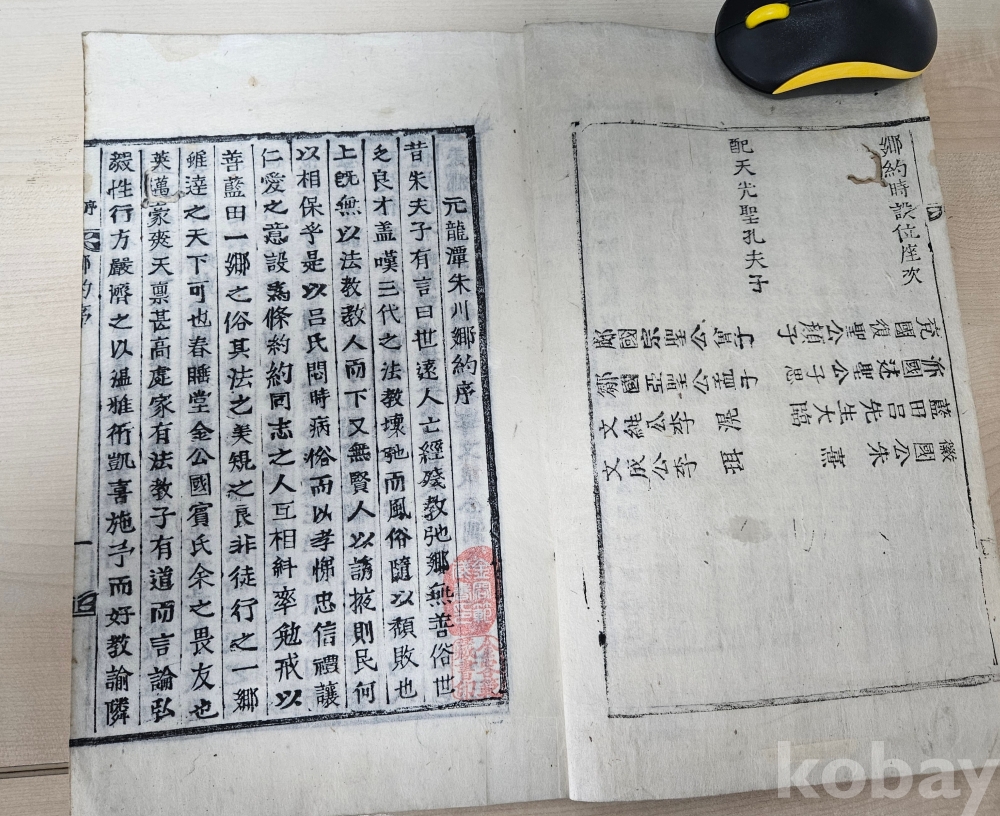 鄕約時設位座次
配天先聖孔夫子
兗國復聖公顔子
沂國述聖公子思
藍田呂先生大
徽國公朱熹
郕國宗聖公曾子
鄒國亞聖公孟子
文純公李滉
文成公李珥
元龍潭朱川鄕約序
昔朱夫子有言曰世遠人亡經殘教弛鄕無善俗世
乏良才盖嘆三代之法教壞弛而風俗隨以頹敗也
上旣無以法教教人而下又無賢人以誘掖則民何
以相保乎是以呂氏悶時病俗而以孝悌忠信禮讓
仁愛之意設爲條約約同志之人互相糾率勉戒以
善藍田一鄕之俗其法之美規之良非徒行之一鄕
雖達之天下可也春睡堂金公國賓氏余之畏友也
英邁豪爽天禀甚高處家有法教子有道而言論弘
毅性行方嚴濟之以溫雅術凱喜施予而好教諭隣
kobay